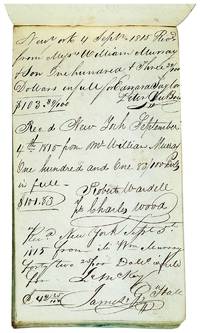 New York 4 Septr 1815 Recd
from Messrs William Murray
& Son One hundred & Three 30/100
Dollars in full for
$103.30/100 Peter
Rec.d New York September
4th 1815 from Mr William Murray
One hundred and One 83/100 Dolls
in full
$101.83 Robert Wardell
Charles Wood
New York Sept 5th
1815 from Wm Murray
forty two Dolls in full
for
$42 James Hall